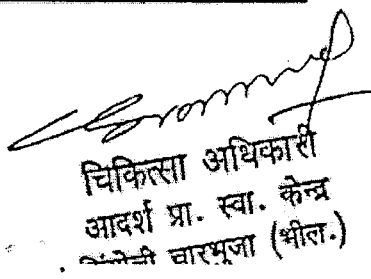 चिकित्सा अधिकारी
आदर्श प्रा. स्वा. केन्द्र
चारभुजा (भील.)